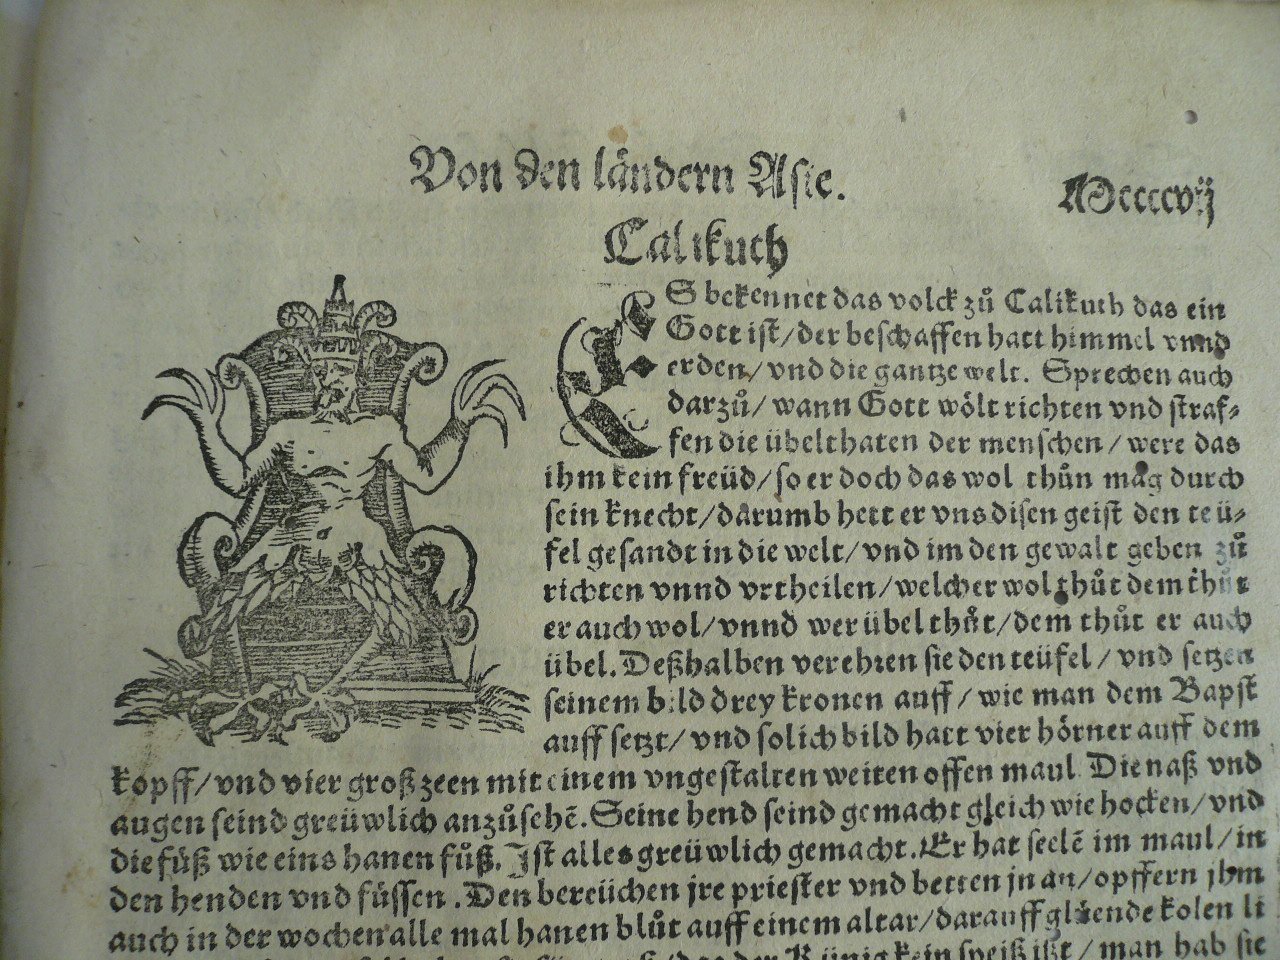 Von den ländern Asie.
Mccccvij
Calikuth
ES bekennet das volck zů Calikuth das ein
Gott ist/der beschaffen hatt himmel vnnd
erden/vnd die gantze welt. Sprechen auch
darzů/wann Gott wölt richten vnd straf⸗
fen die übelthaten der menschen/were das
ihm kein freüd/so er doch das wol thůn mag durch
sein knecht/darumb hett er vns disen geist den teü⸗
fel gesandt in die welt/vnd im den gewalt geben zů
richten vnnd vrtheilen/welcher wol thůt dem thůt
er auch wol/vnnd wer übel thůt/dem thůt er auch
übel. Deßhalben verehren sie den teüfel/vnd setzen
seinem bild drey kronen auff/wie man dem Bapst
auff setzt/vnd solich bild hatt vier hörner auff dem
kopff/vnd vier groß zeen mit einem vngestalten weiten offen maul Die naß vnd
augen seind greüwlich anzůsehē. Seine hend seind gemacht gleich wie hocken/vnd
die füß wie eins hanen fůß. Ist alles greüwlich gemacht. Er hat seelē im maul/in
den henden vnd füssen. Den bereüchen jre priester vnd betten jn an/opffern jhm
auch in der wochen alle mal hanen blůt auff einem altar/darauff glüende kolen li
der Künig kein speiß ißt/man hab sie